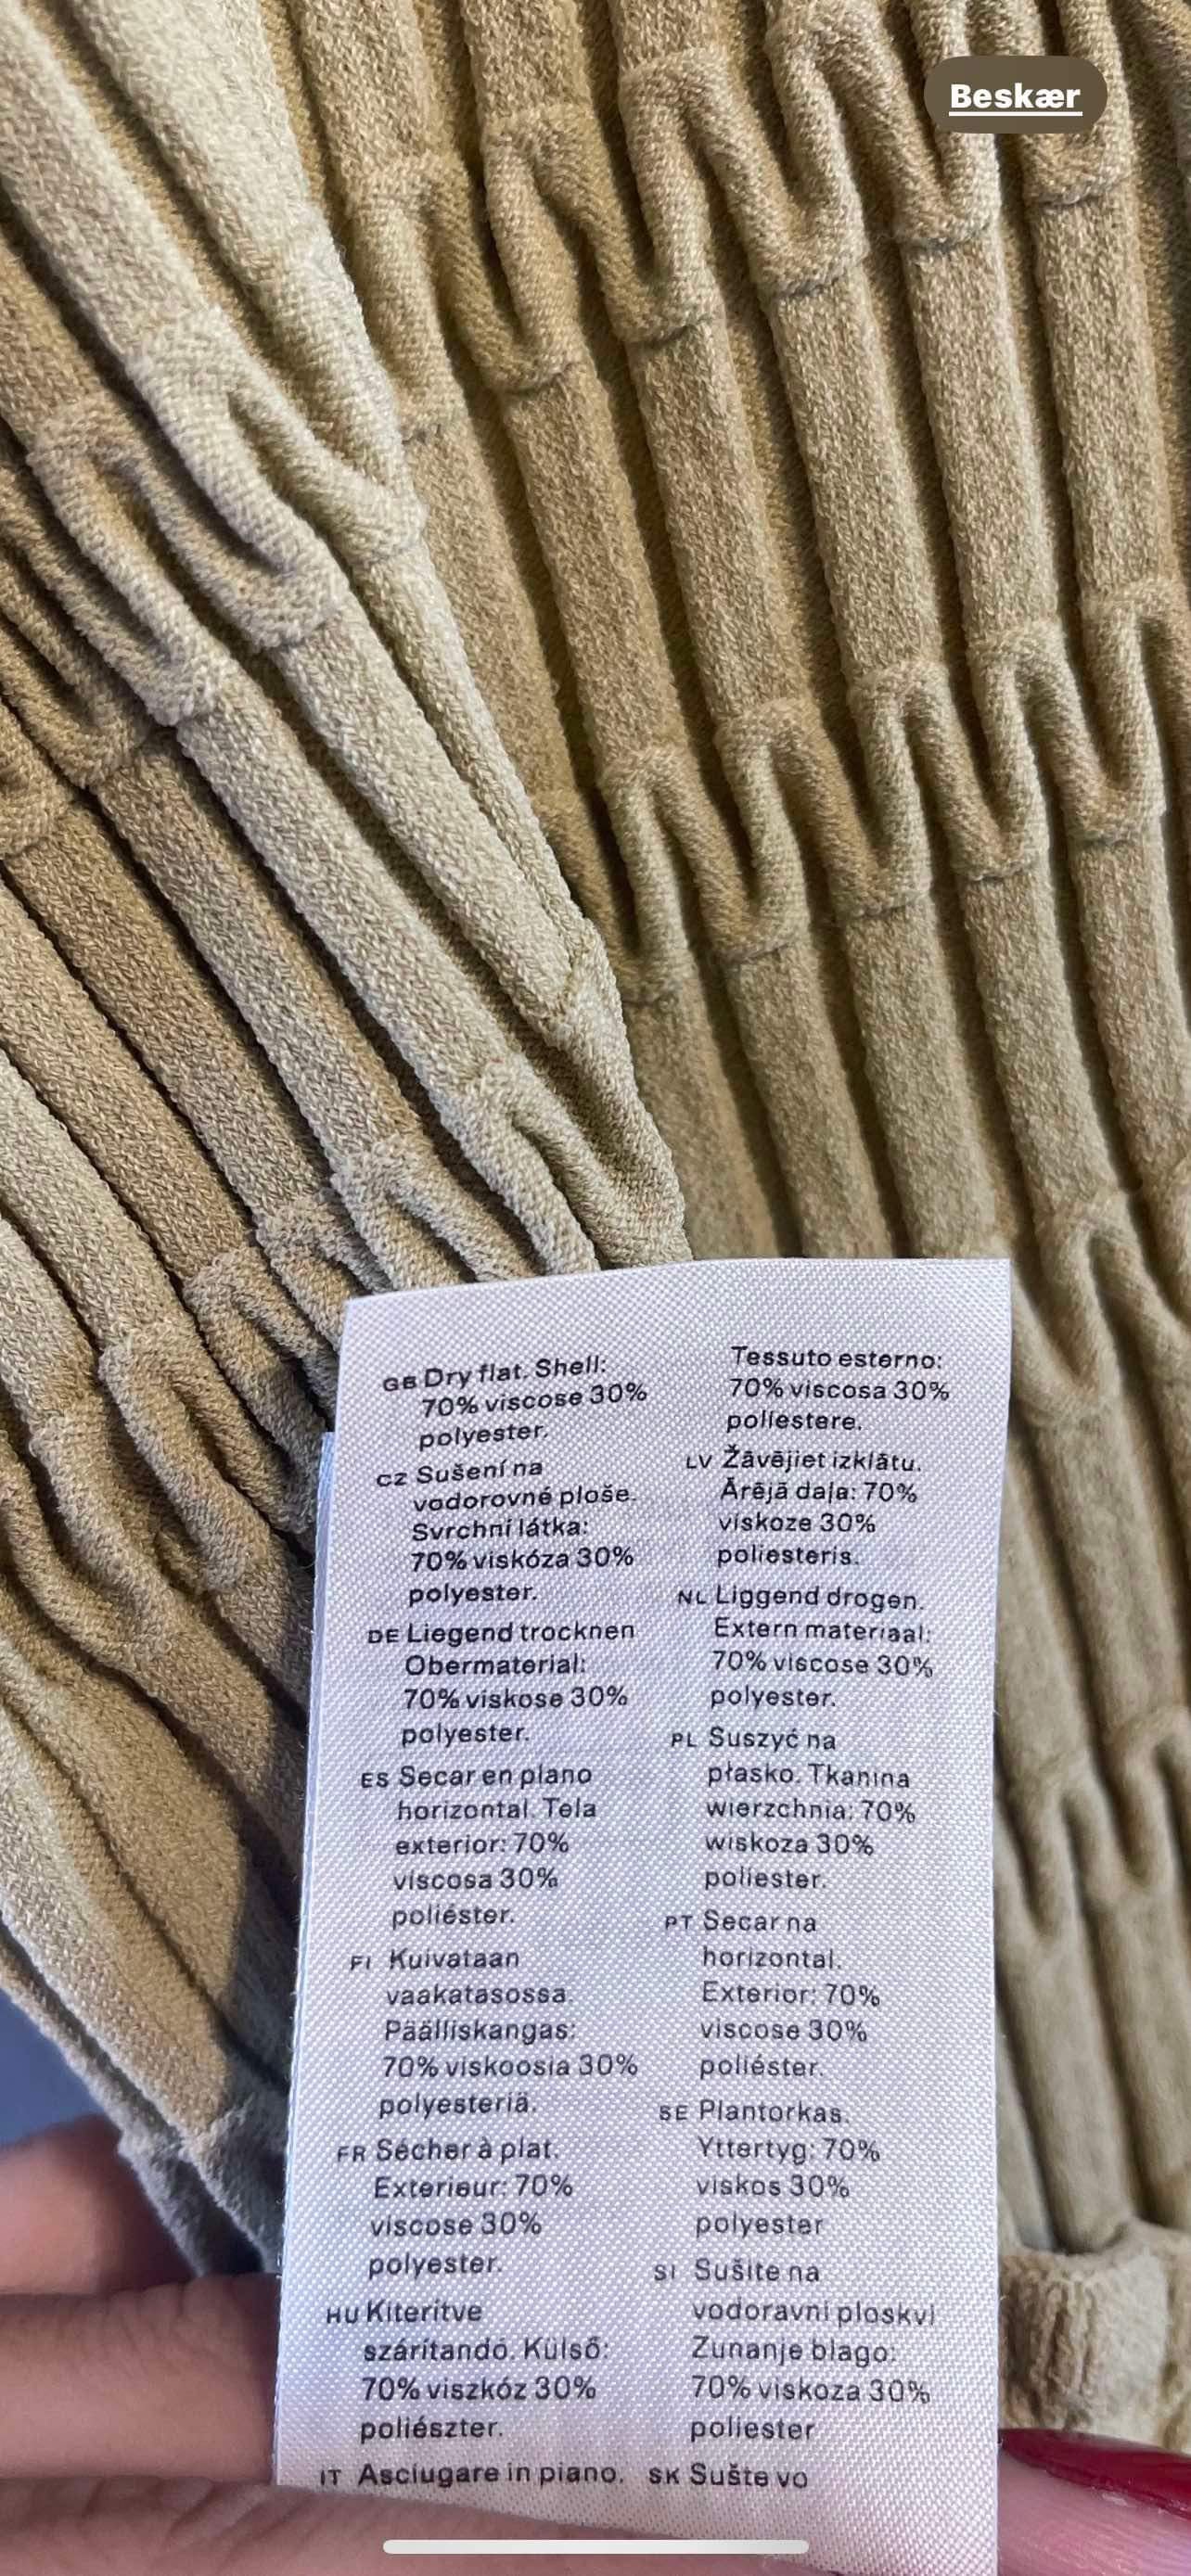 Beskær
GB Dry flat. Shell:
70% viscose 30%
polyester.
CZ Sušení na
vodorovné ploše.
Svrchní látka:
70% viskóza 30%
polyester.
DE Liegend trocknen
Obermaterial:
70% viskose 30%
polyester.
ES Secar en plano
horizontal. Tela
exterior: 70%
viscosa 30%
poliéster.
FI Kuivataan
vaakatasossa.
Päälliskangas:
70% viskoosia 30%
polyesteriä.
FR Sécher à plat.
Exterieur: 70%
viscose 30%
polyester.
HU Kiterítve
szárítandó. Külső:
70% viszkóz 30%
poliészter.
IT Asciugare in piano.
Tessuto esterno:
70% viscosa 30%
poliestere.
LV Žāvējiet izklātu.
Ārējā daļa: 70%
viskoze 30%
poliesteris.
NL Liggend drogen.
Extern materiaal:
70% viscose 30%
polyester.
PL Suszyć na
płasko. Tkanina
wierzchnia: 70%
wiskoza 30%
poliester.
PT Secar na
horizontal.
Exterior: 70%
viscose 30%
poliéster.
SE Plantorkas.
Yttertyg: 70%
viskos 30%
polyester
SI Sušite na
vodoravni ploskvi
Zunanje blago:
70% viskoza 30%
poliester
SK Sušte vo